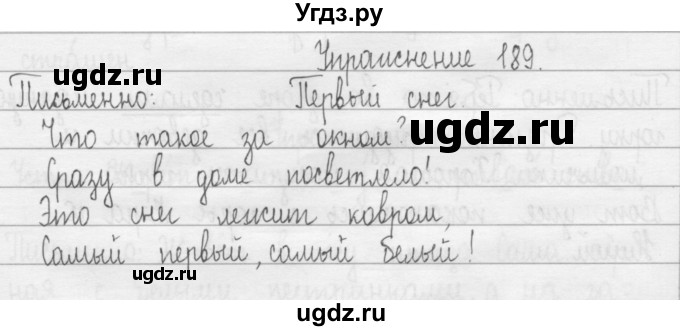 Угдз.ру
Упражнение 189.
ugdz.ru
Письменно: Первый снег
Что такое за окном? ugdz.ru
Сразу в доме посветлело!
ugdz.ru
Это снег лежит ковром,
Самый первый, самый белый!
ugdz.ru
ugdz.ru